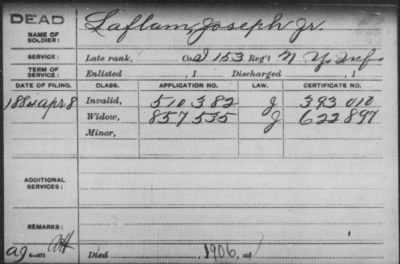 DEAD
NAME OF SOLDIER: Laflam, Joseph Jr.
SERVICE: Late rank, Co. I 153 Reg't N.Y. Inf
TERM OF SERVICE: Enlisted , 1 Discharged , 1
DATE OF FILING. CLASS. APPLICATION NO. LAW. CERTIFICATE NO.
1884 Apr 8 Invalid, 510382 J 393010
Widow, 857535 J 622897
Minor,
ADDITIONAL SERVICES:
REMARKS:
Died , 1906, at